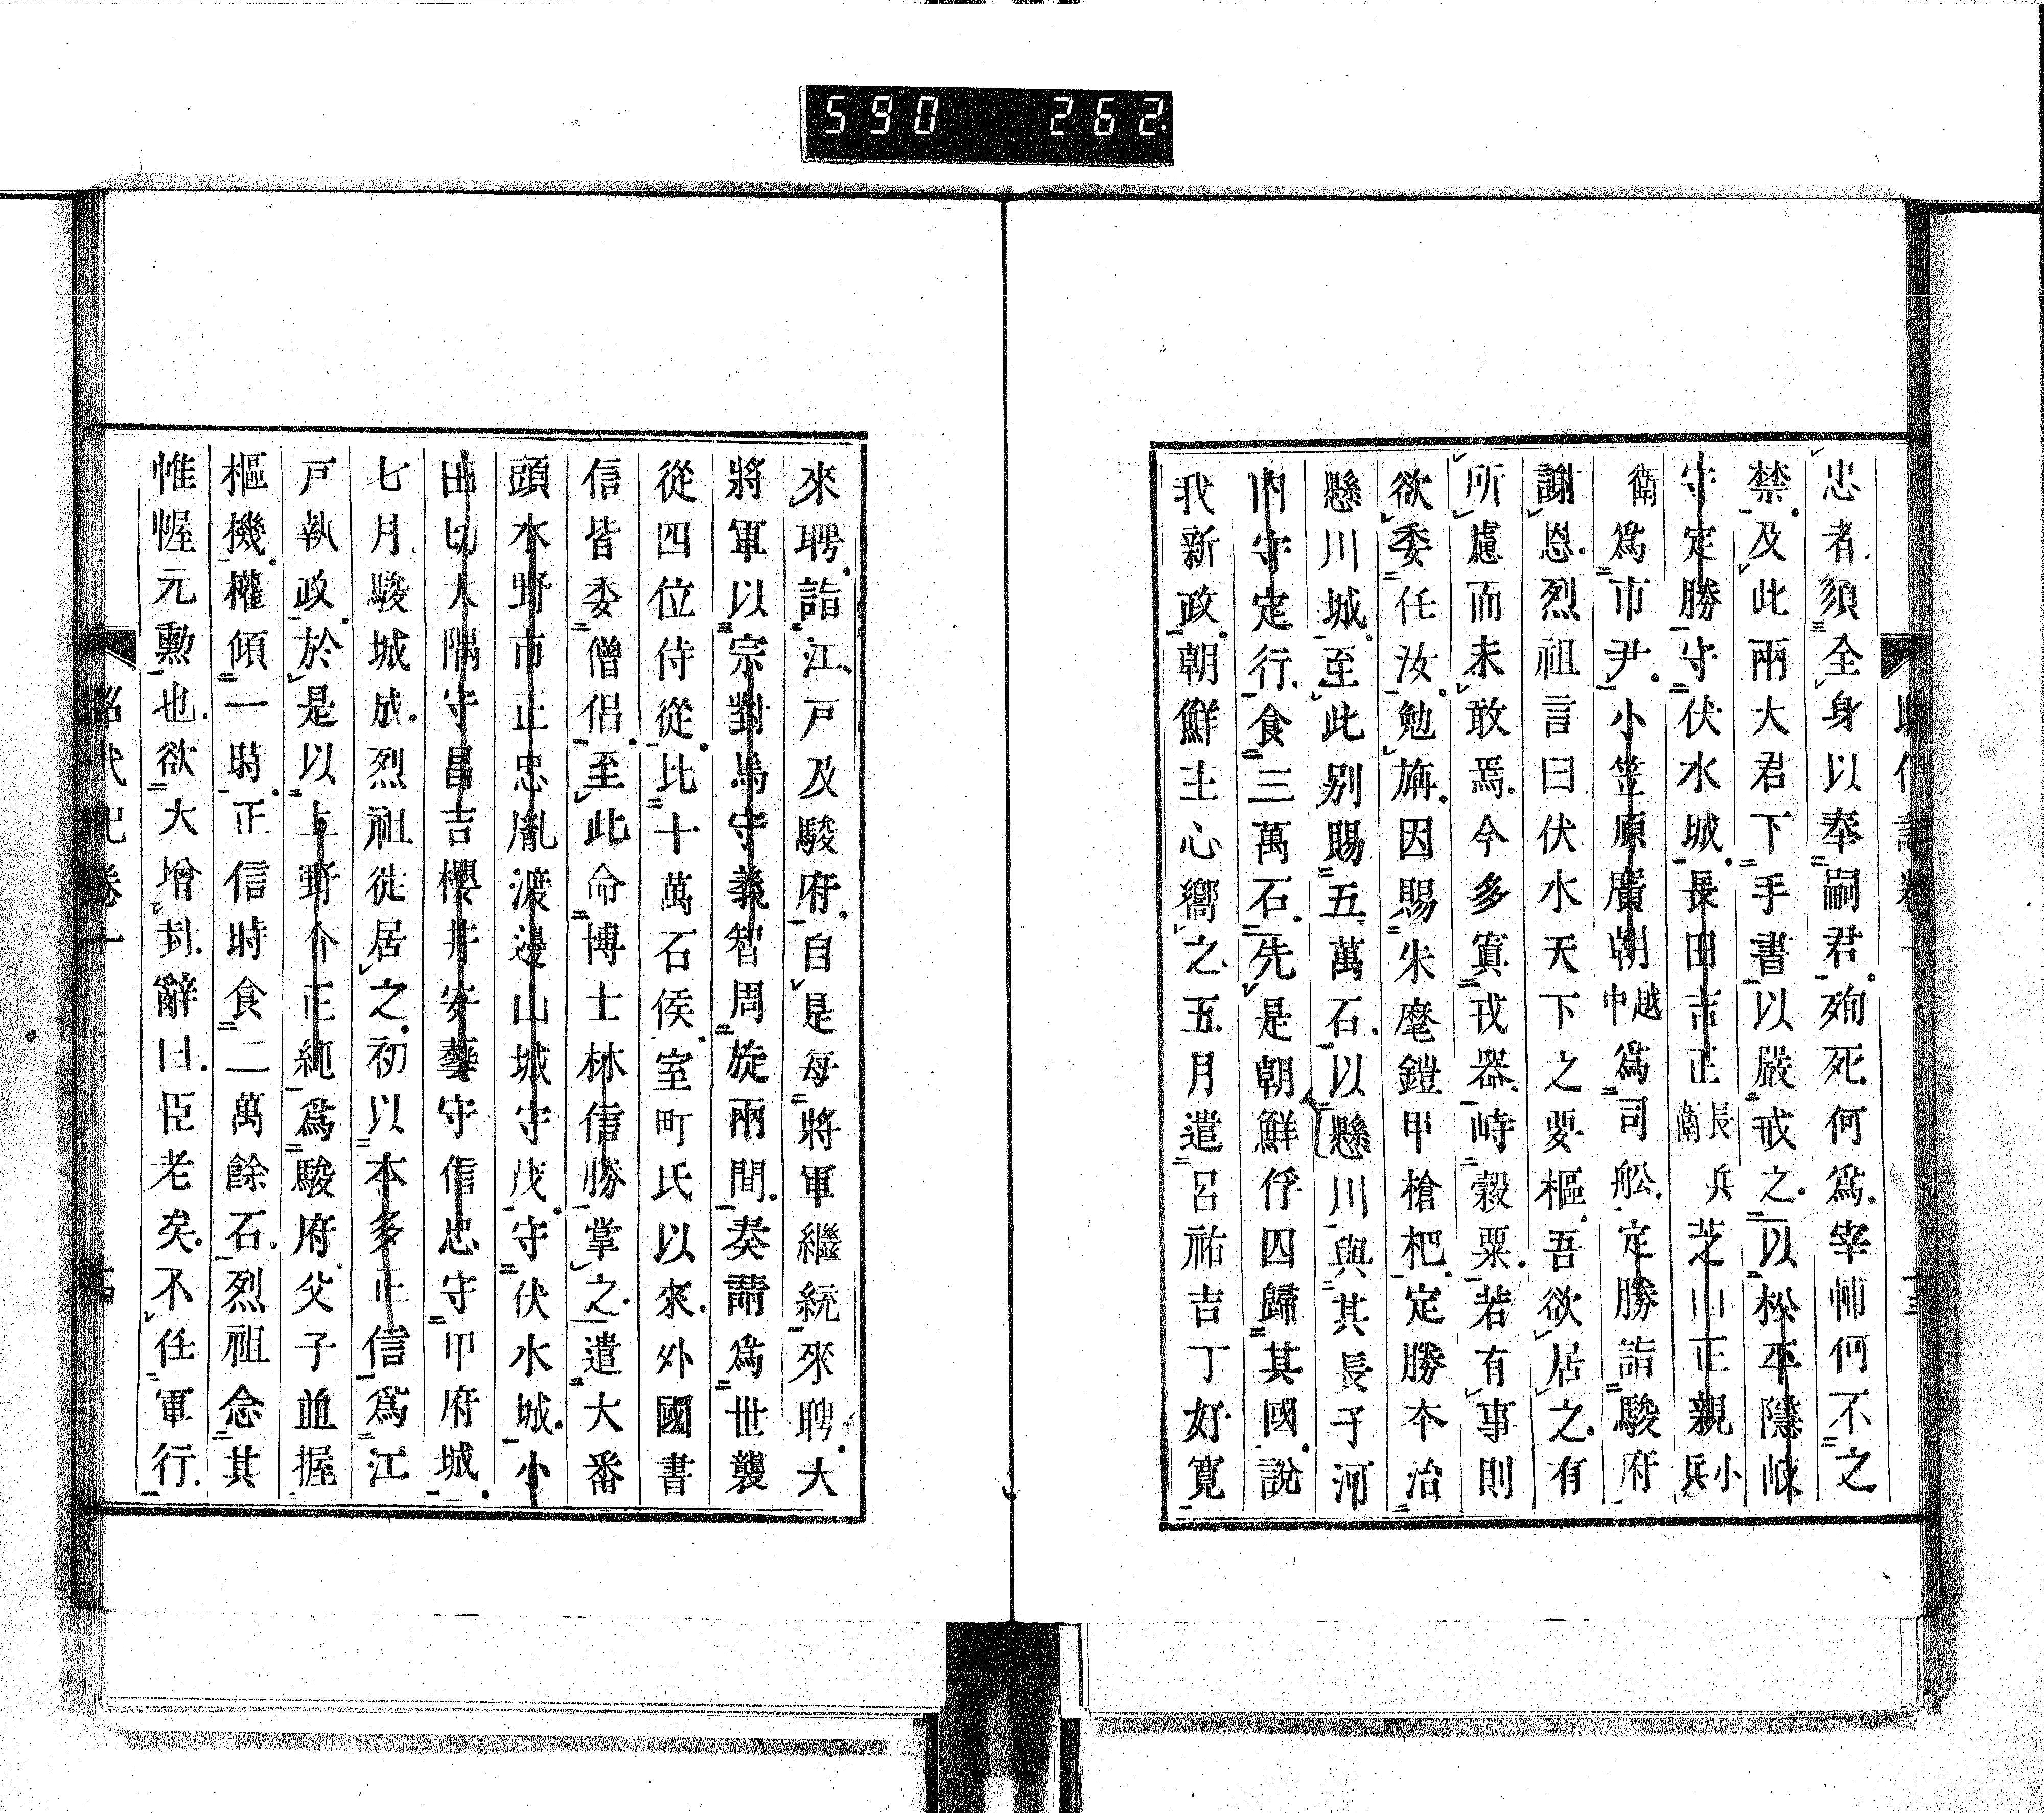 590 262
忠者須全身以奉嗣君殉死何爲宰怖何不之
禁及此兩大君下手書以嚴戒之以松平隱岐
守定勝守伏水城長田吉正長兵衞芝山正親小兵
衞爲市尹小笠原廣朝越中爲司舩定勝詣駿府
謝恩烈祖言曰伏水天下之要樞吾欲居之有
所慮而未敢焉今多寘戎器峙穀粟若有事則
欲委任汝勉旃因賜朱麾鎧甲槍杷定勝本治
懸川城至此別賜五萬石以懸川與其長子河
內守定行食三萬石先是朝鮮俘四歸其國說
我新政朝鮮主心嚮之五月遣呂祐吉丁好寬
來聘詣江戸及駿府自是每將軍繼統來聘大
將軍以宗對馬守義智周旋兩間奏請爲世襲
從四位侍從比十萬石侯室町氏以來外國書
信皆委僧侶至此命博士林信勝掌之遣大番
頭水野市正忠胤渡邊山城守茂守伏水城小
田切大隅守昌吉櫻井安藝守信忠守甲府城
七月駿城成烈祖徙居之初以本多正信爲江
戸執政於是以上野介正純爲駿府父子並握
樞機權傾一時正信時食二萬餘石烈祖念其
帷幄元勳也欲大增封辭曰臣老矣不任軍行
昭代記卷一